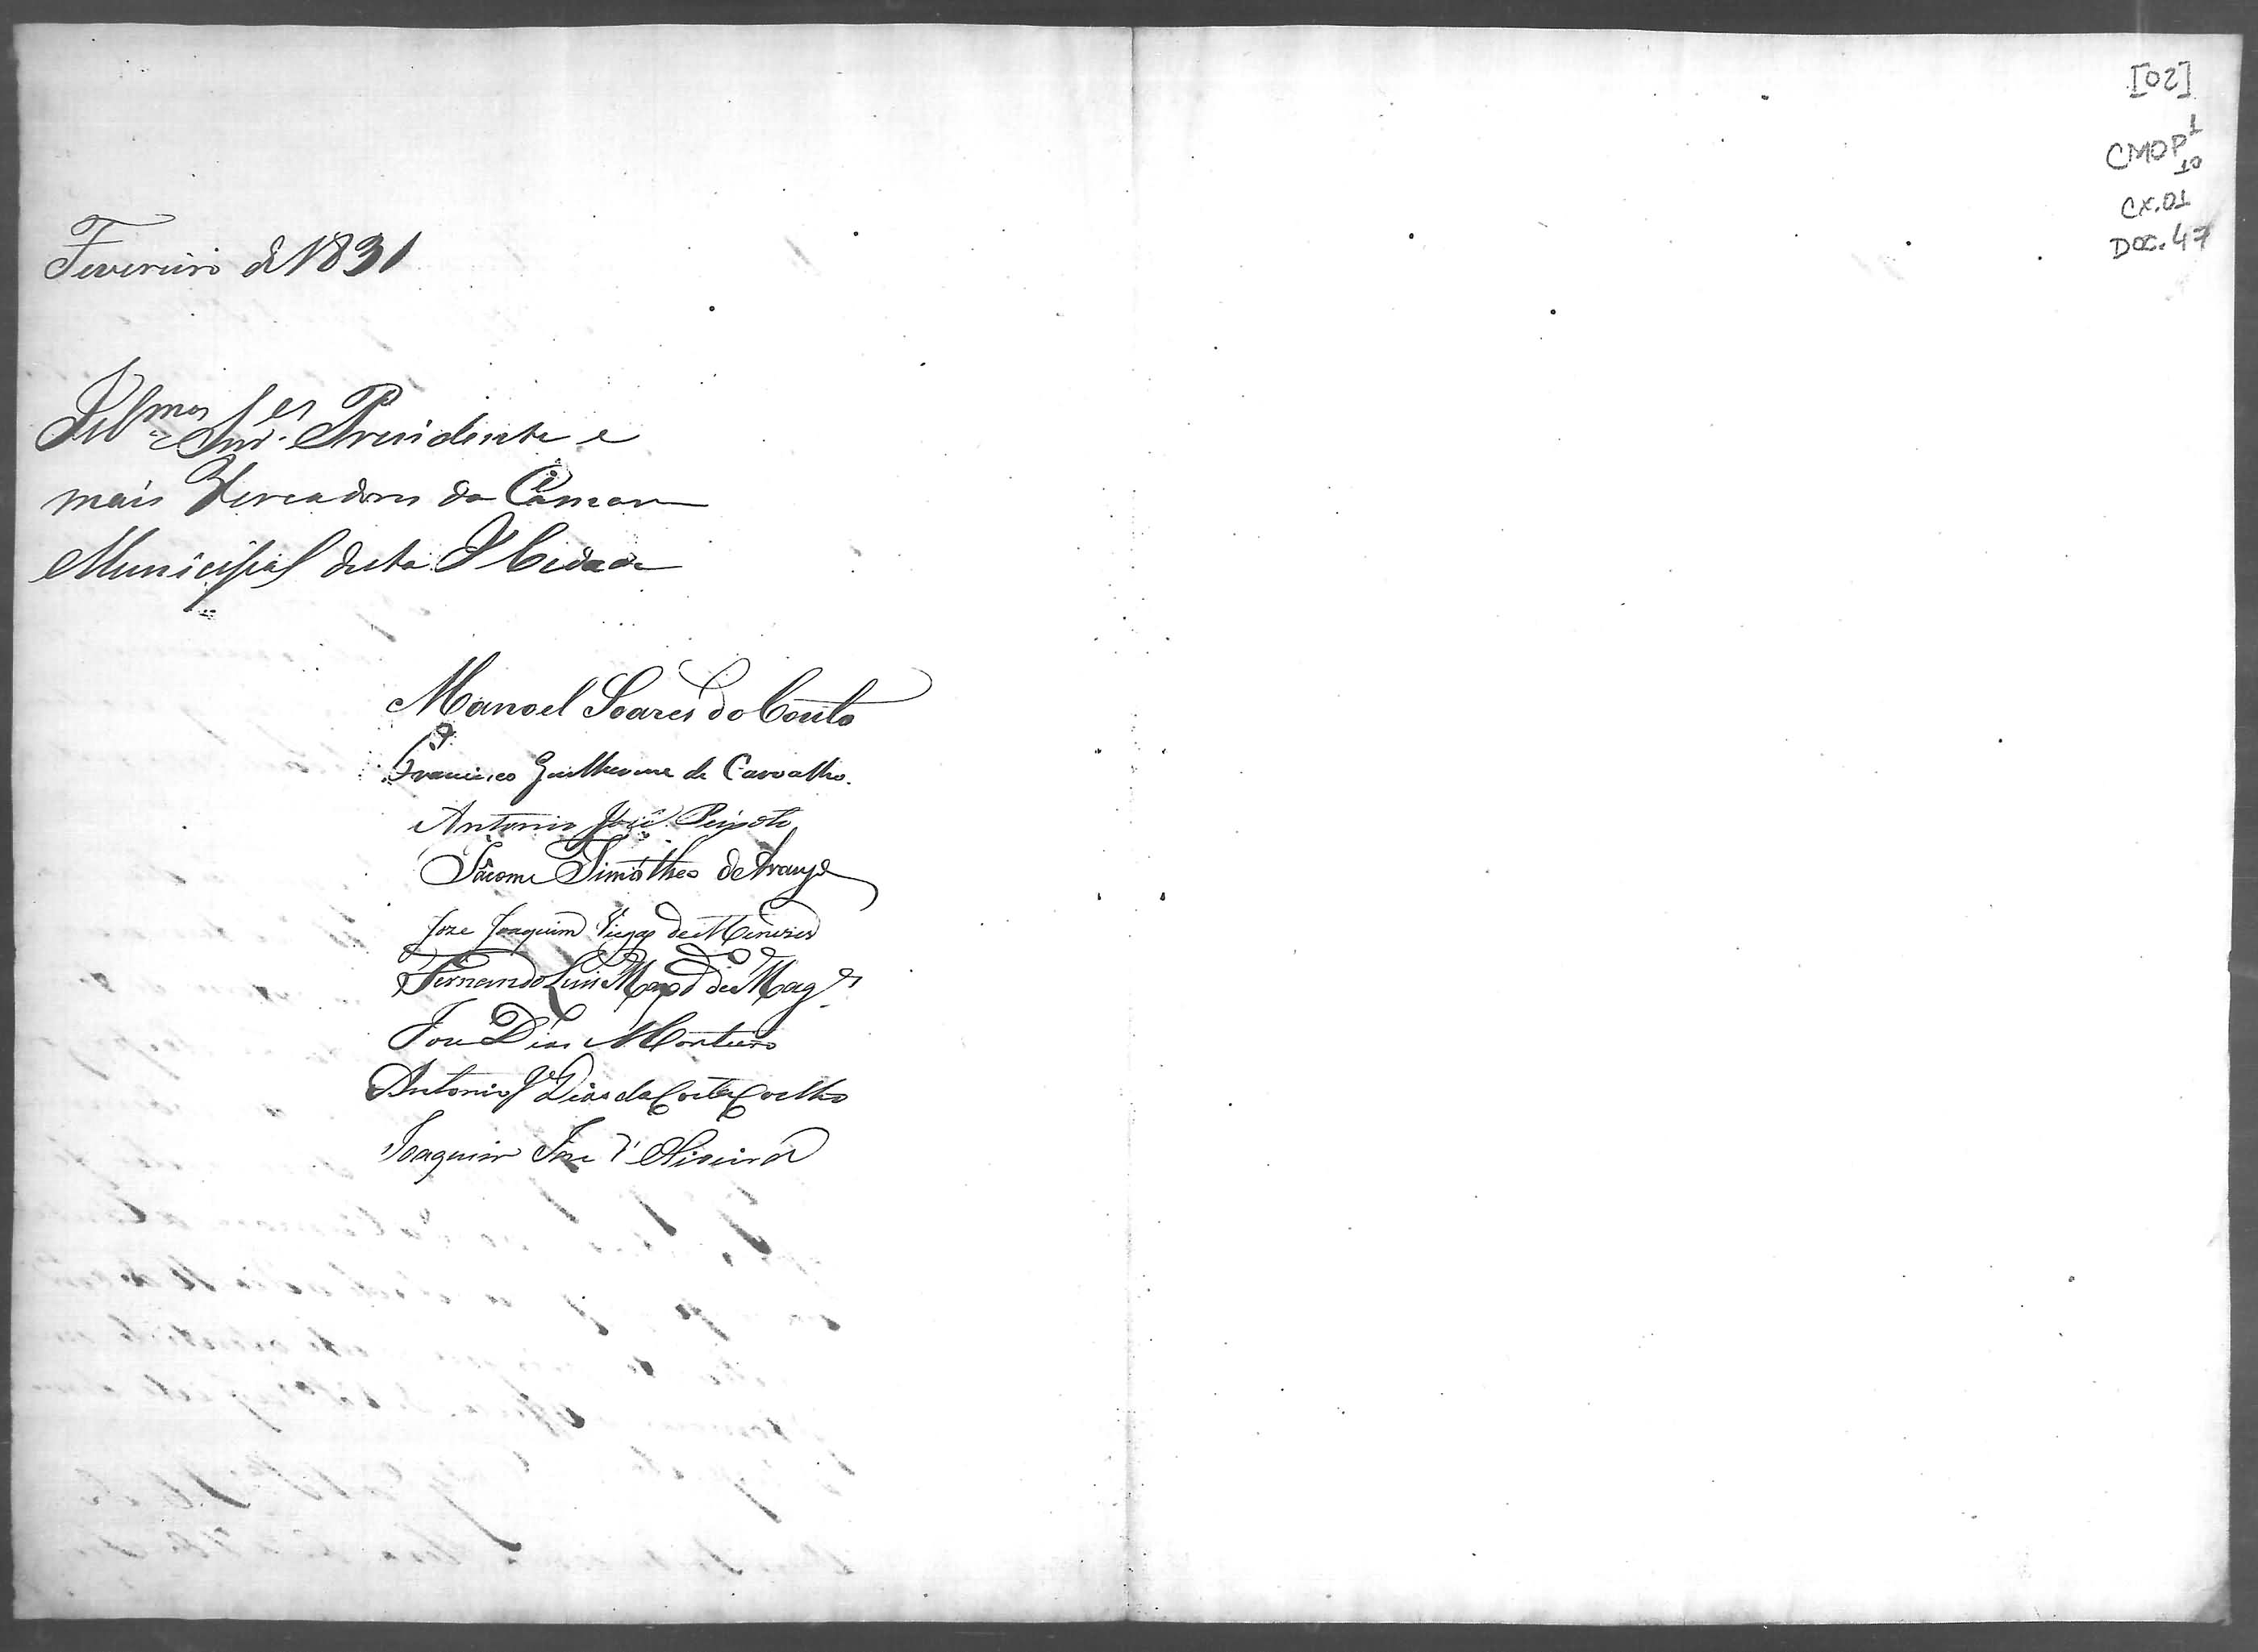 Fevereiro de 1831
Illmos Snres Presidente e
mais Vereadores da Camara
Municipal desta I Cidade
Manoel Soares do Couto
Francisco Guilherme de Carvalho.
Antonio José Peixoto
Jâcome Timótheo de Araujo
Joze Joaquim Viegas de Menezes
Fernando Luis Maxdo de Mages
Joze Dias Monteiro
Antonio Je Dias da Costa Coelho
Joaquim Joze d'Oliveira
[02]
CMOP 1
10
CX.01
DOC.47